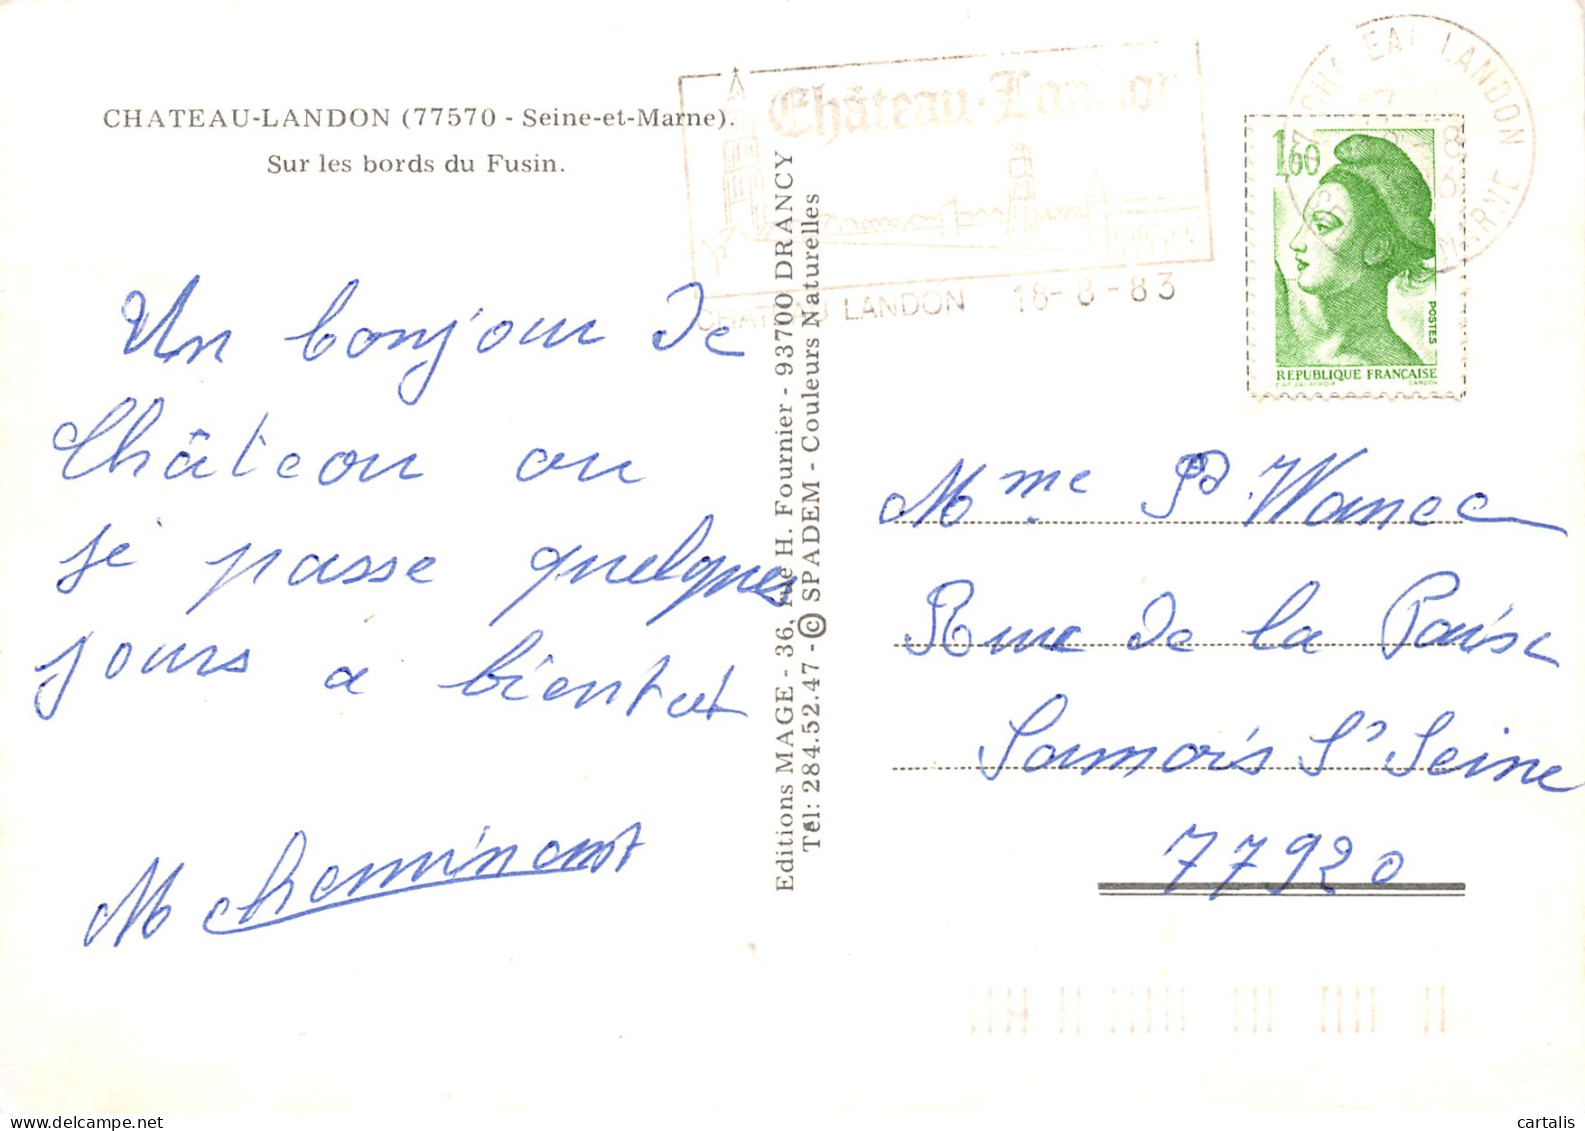 CHATEAU-LANDON (77570 - Seine-et-Marne).
Sur les bords du Fusin.
Château-Landon
CHATEAU LANDON 18-8-83
CHATEAU LANDON
MARNE
1,60
POSTES
REPUBLIQUE FRANÇAISE
Un bonjour de
Château ou
je passe quelques
jours a bientot
M Cheminant
Editions MAGE - 36, rue H. Fournier - 93700 DRANCY
Tél: 284.52.47 - © SPADEM - Couleurs Naturelles
Mme P Wance
Rue de la
Samois S' Seine
77920
cartalis